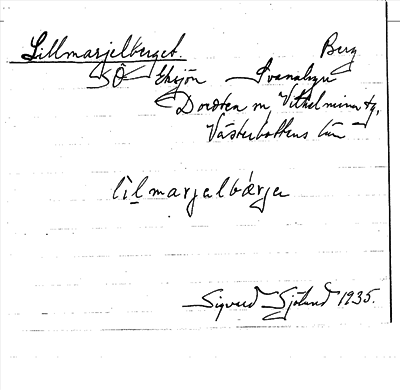 Lillmarjelberget. Berg
SÖ Eksjön Svanabyn
Dorotea m, Vilhelmina tg,
Västerbottens län
lìlmarjalbǽrja
Sigvard Sjölund 1935.